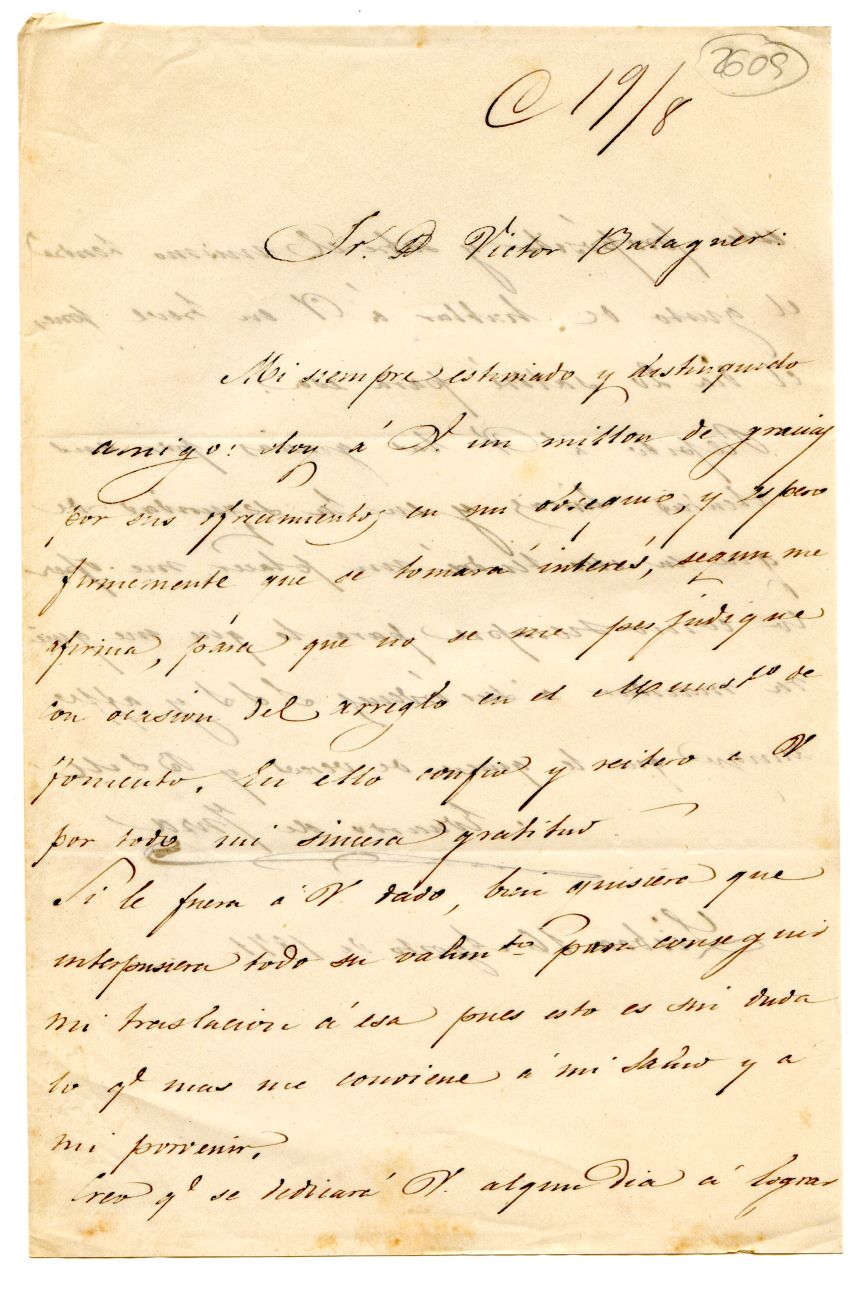 2609
C 19/8
Sr. D. Victor Balaguer:
Mi siempre estimado y distinguido
amigo: doy á V. un millon de gracias
por sus ofrecimientos en mi obsequio, y espero
firmemente que se tomará interés, segun me
afirma, para que no se me perjudique
con ocasion del arreglo en el Minist.º de
Fomento. En ello confio y reitero a V
por todo mi sincera gratitud
Si le fuera á V. dado, bien quisiera que
interpusiera todo su valim.to para conseguir
mi traslacion á esa pues esto es sin duda
lo q.e mas me conviene á mi salud y a
mi porvenir.
Creo q.e se dedicará V. algun dia á lograr